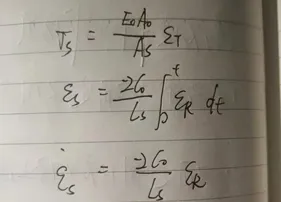 Ts = E₀A₀/As εT
εs = 2C₀/Ls ∫₀ᵗ εR dt
ε̇s = -2C₀/Ls εR